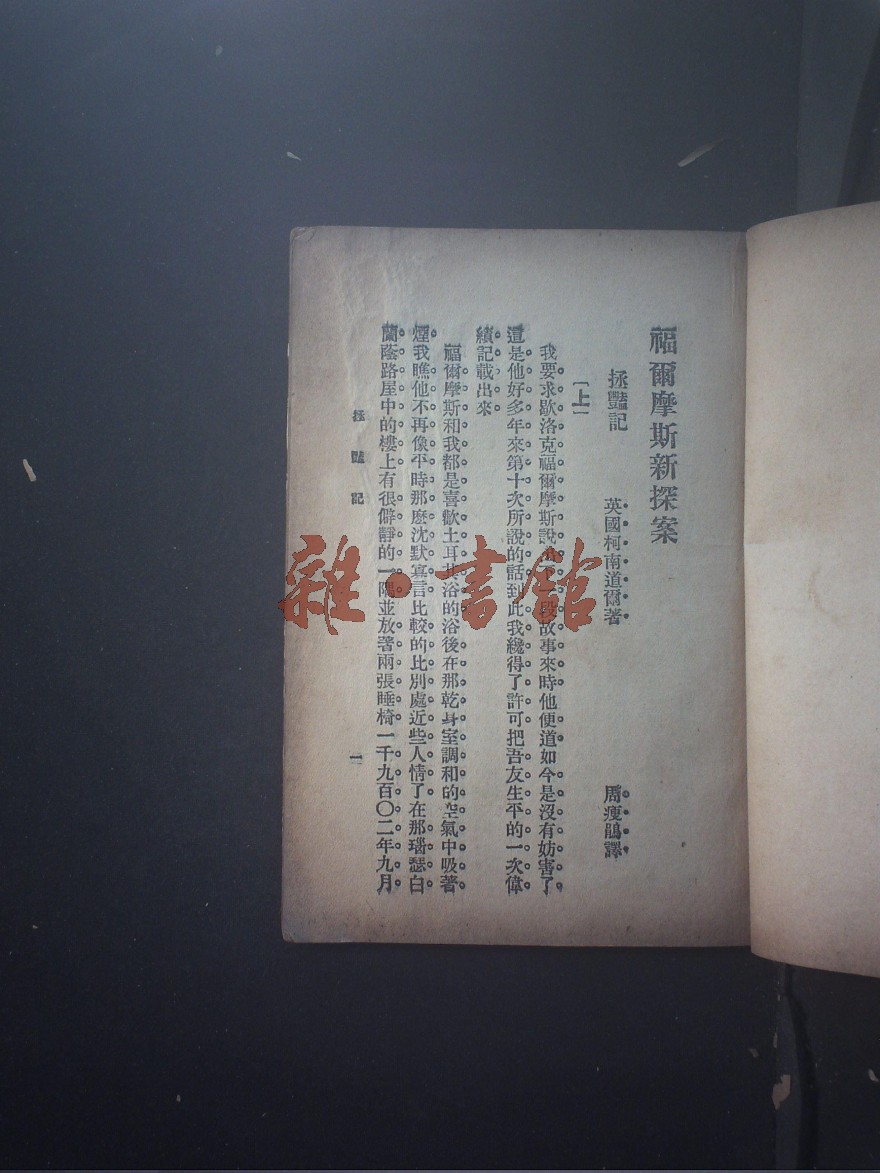 福爾摩斯新探案
拯豔記 英國柯南道爾著 周瘦鵑譯
〔上〕
我要求歇洛克福爾摩斯說 段故事來時他便道如今是沒有妨害了
這是他好多年來第十次所說的話到此我纔得了許可把吾友生平的一次偉
績記載出來
福爾摩斯和我都是喜歡土耳其浴的浴後在那乾身室調和的空氣中吸著
煙我瞧他不再像平時那麽沈默寡言比較的比別處近些人情了在那瑙瑟白
蘭蔭路屋中的樓上有很僻靜的一隅並放著兩張睡椅一千九百〇二年九月
拯豔記
一
雜·書館